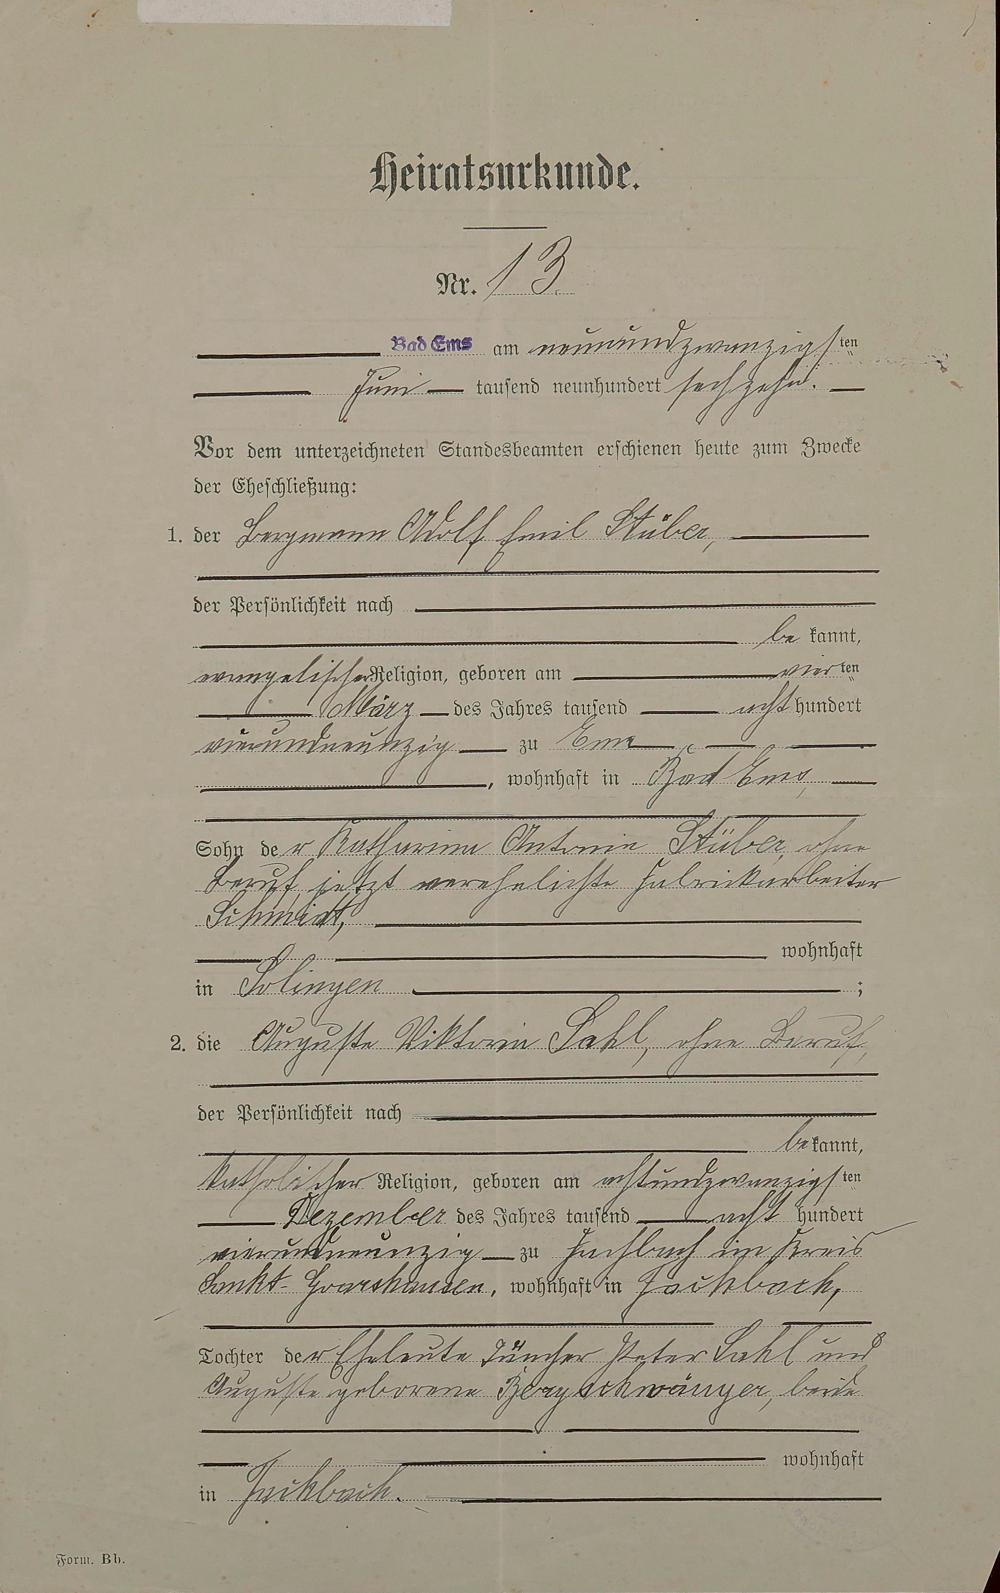 Heiratsurkunde.
Nr. 13.
Bad Ems am neunundzwanzigsten
Juni tausend neunhundert sechzehn.
Vor dem unterzeichneten Standesbeamten erschienen heute zum Zwecke
der Eheschließung:
1. der Bergmann Adolf Emil Stüber,
der Persönlichkeit nach
be kannt,
evangelischer Religion, geboren am vierten
März des Jahres tausend acht hundert
vierundneunzig zu Ems
, wohnhaft in Bad Ems,
Sohn der Katharina Antonie Stüber, ohne
Beruf, jetzt verehelichte Fabrikarbeiter
Schmidt,
wohnhaft
in Solingen ;
2. die Auguste Viktoria Sahl, ohne Beruf,
der Persönlichkeit nach
be kannt,
katholischer Religion, geboren am achtundzwanzigsten
Dezember des Jahres tausend acht hundert
vierundneunzig zu Fachbach im Kreis
Sankt-Goarshausen, wohnhaft in Fachbach,
Tochter der Eheleute Tüncher Peter Sahl und
Auguste geborene Bergschwänger, beide
wohnhaft
in Fachbach.
Form. Bb.